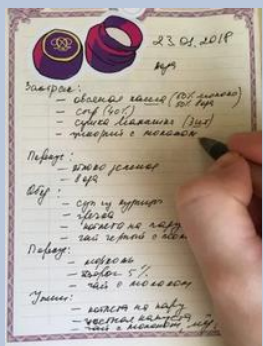 23.01.2018
вода
Завтрак:
– овсяная каша (50% молоко
50% вода
– сыр (40%)
– сушка Малышка (3шт)
– цикорий с молоком
Перекус:
– яблоко зеленое
– вода
Обед:
– суп из курицы
– гречка
– котлета на пару
– чай черный с
Перекус:
– морковь
– творог 5%
– чай с молоком
Ужин:
– котлета на пару
– капуста
– чай с молоком